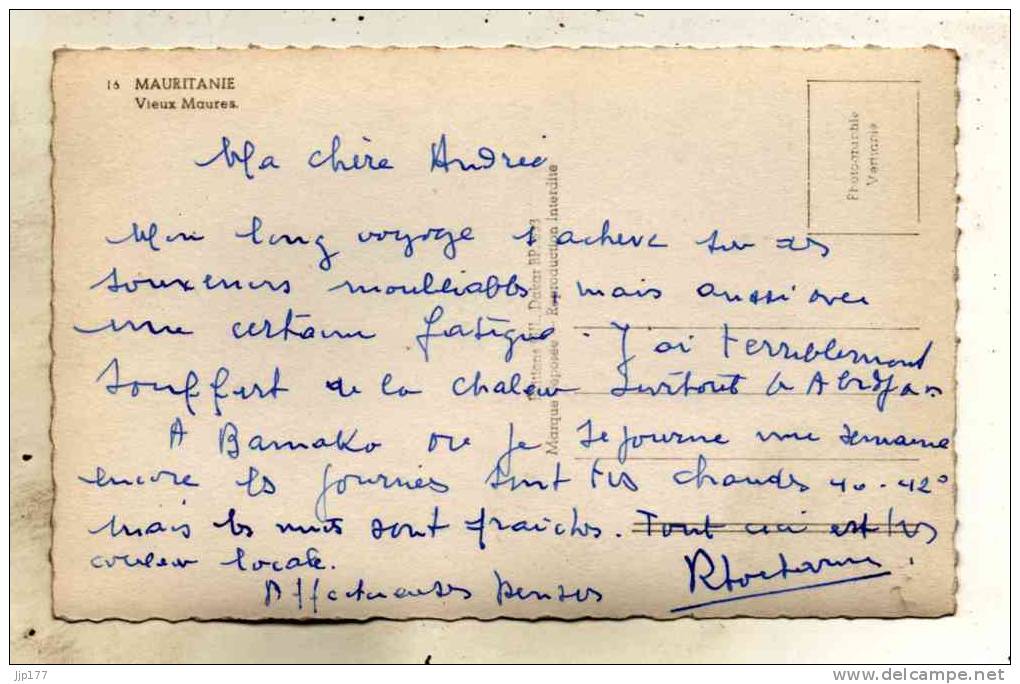 16 MAURITANIE
Vieux Maures.
Photographie
Véritable
Ma chère Andrée
Mon long voyage s'achève sur des
souvenirs inoubliables, mais aussi avec
une certaine fatigue. J'ai terriblement
souffert de la chaleur surtout à Abidjan
A Bamako où je séjourne une semaine
encore les journées sont très chaudes 40-42°
mais les nuits sont fraîches. Tout ceci est très
couleur locale.
Affectueuses pensées
Dakar BP
Marque déposée - Reproduction Interdite
jjp177
www.delcampe.net